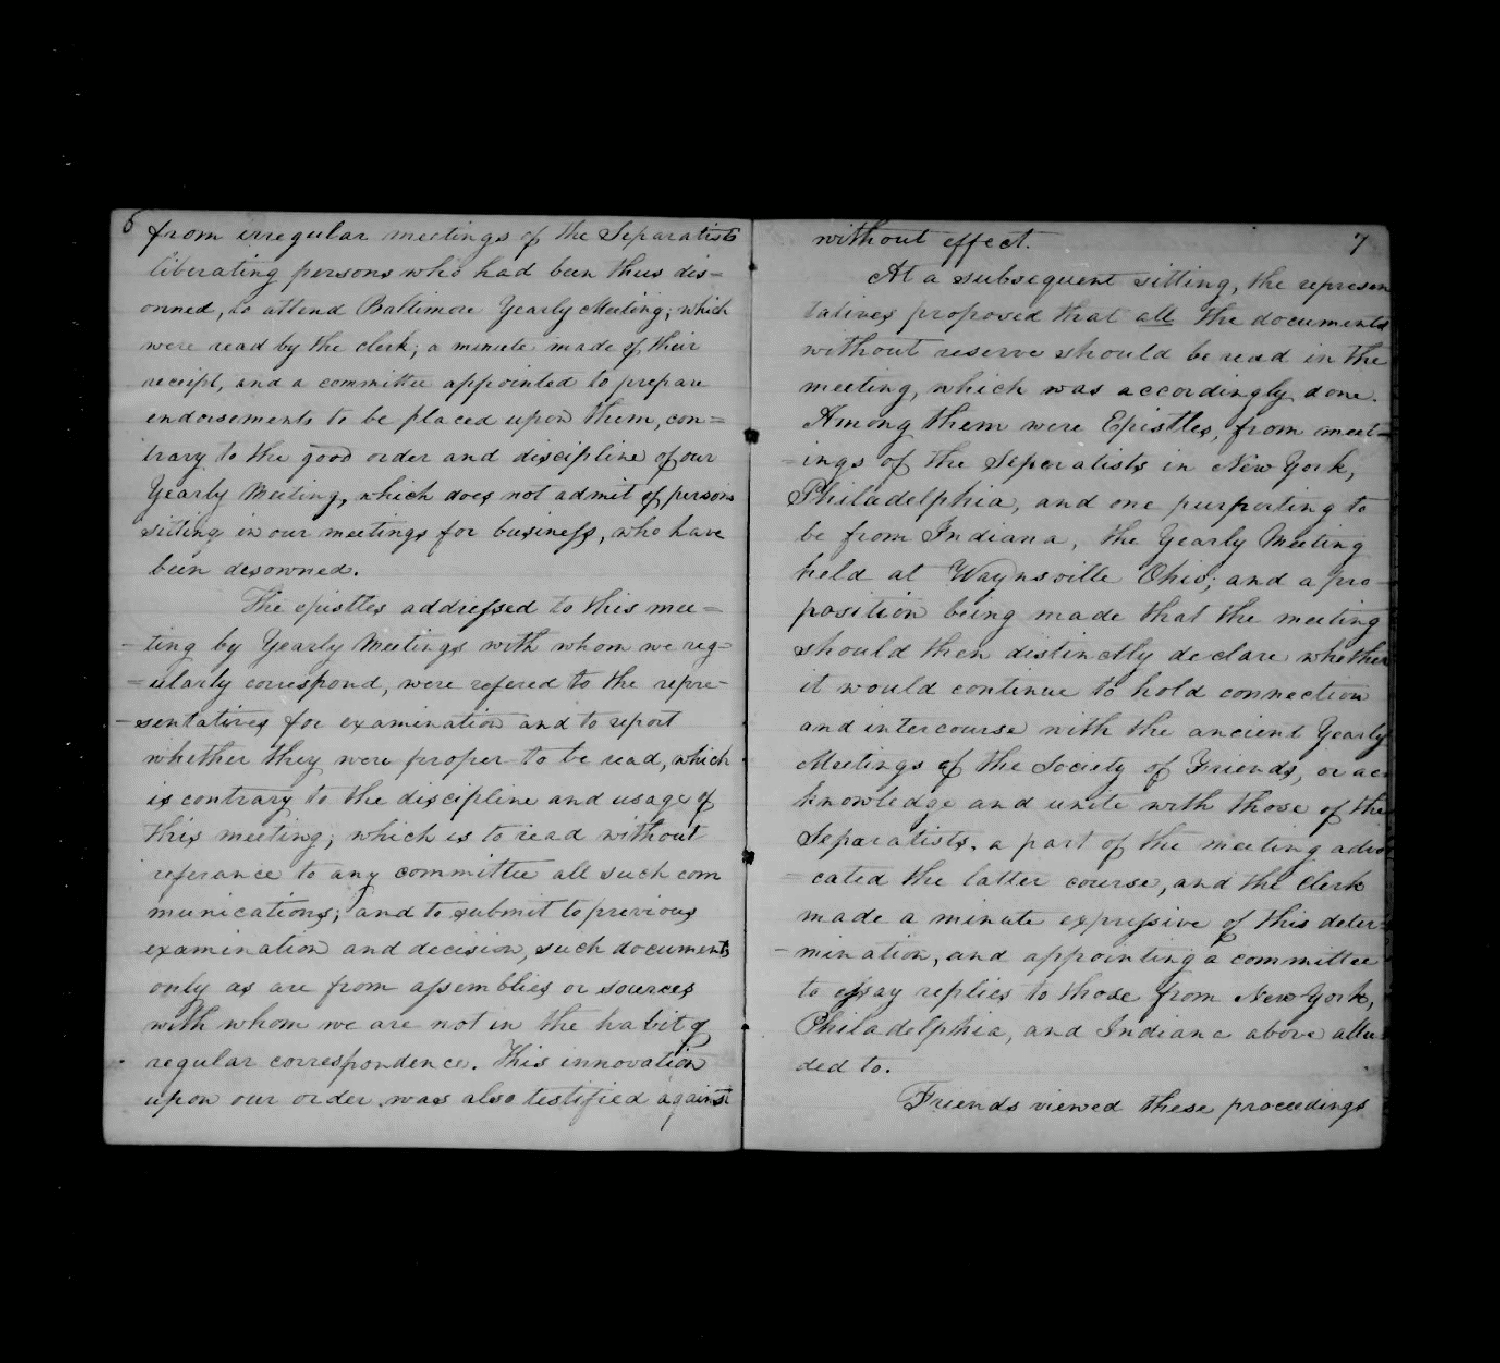 6
from irregular meetings of the Separatists
liberating persons who had been thus dis-
owned, to attend Baltimore Yearly Meeting; which
were read by the clerk; a minute made of their
receipt, and a committee appointed to prepare
endorsements to be placed upon them, con=
trary to the good order and discipline of our
Yearly Meeting, which does not admit of persons
sitting in our meetings for business, who have
been desowned.
The epistles addressed to this mee=
-ting by Yearly Meetings with whom we reg-
=ularly correspond, were refered to the repre-
-sentatives for examination and to report
whether they were proper to be read, which
is contrary to the discipline and usage of
this meeting; which is to read without
referance to any committee all such com
munications; and to submit to previous
examination and decision, such documents
only as are from assemblies or sources
with whom we are not in the habit of
regular correspondence. This innovation
upon our order was also testified against
7
without effect.
At a subsequent sitting, the represen
tatives proposed that all the documents
without reserve should be read in the
meeting, which was accordingly done.
Among them were Epistles, from meet-
-ings of the Seperatists in New York,
Philadelphia, and one purporting to
be from Indiana, the Yearly Meeting
held at Waynsville Ohio; and a pro-
position being made that the meeting
should then distinctly declare whether
it would continue to hold connection
and intercourse with the ancient Yearly
Meetings of the Society of Friends, or ac
knowledge and unite with those of the
Separatists. a part of the meeting advo
=cated the latter course, and the clerk
made a minute expressive of this deter-
-mination, and appointing a committee
to essay replies to those from New York,
Philadelphia, and Indiana above allu
ded to.
Friends viewed these proceedings